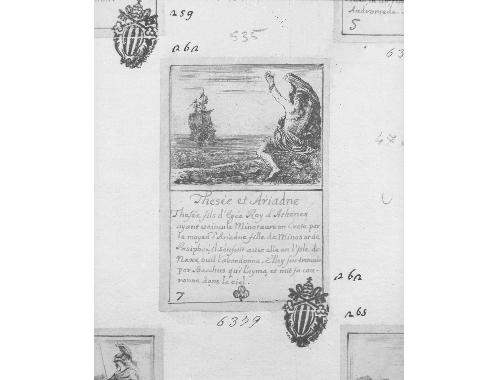 259
262
535
Andromede
5
63
47
Thesée et Ariadne
Thesée fils d'Egée Roy d'Athenes
ayant vaincu le Minotaure en Crete par
le moyen d'Ariadne fille de Minos et de
Pasiphae, il s'enfuit avec elle en l'Isle de
Naxe, ou il l'abandonna. Elle y fut trouvée
par Bacchus qui l'ayma et mit sa cou-
ronne dans le ciel.
7
262
6339
265